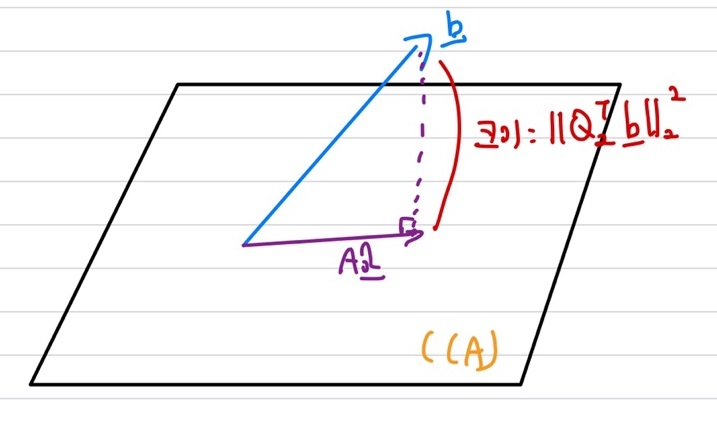 b
크기 = ||Q₂ᵀ b||₂²
Ax̂
C(A)